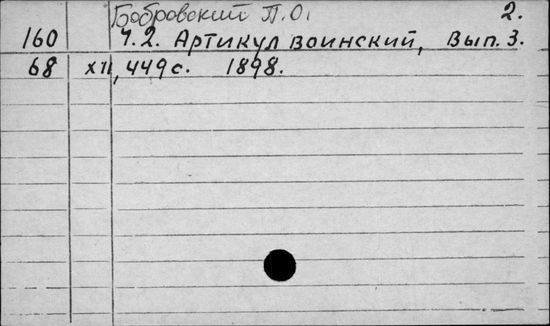 Бобровский П.О. 2.
160 Ч.2. Артикул воинский, Вып. 3.
68 XII, 449 с. 1898.